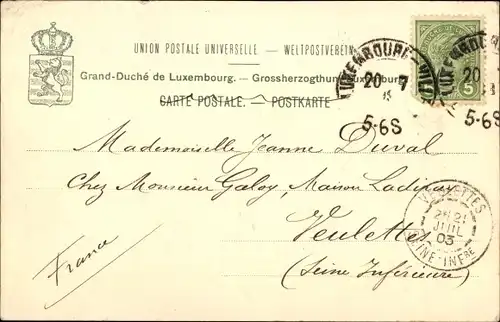 UNION POSTALE UNIVERSELLE. — WELTPOSTVEREIN
Grand-Duché de Luxembourg. — Grossherzogthum Luxemburg.
CARTE POSTALE. — POSTKARTE
LUXEMBOURG-VILLE
20 7
5-6S
LUXEMBOURG
20
5-6S
5
Mademoiselle Jeanne Duval
Chez Monsieur Galoy, Maison
Veulettes
(Seine Inférieure)
France
VEULETTES
21
JUIL
03
SEINE-INFRE